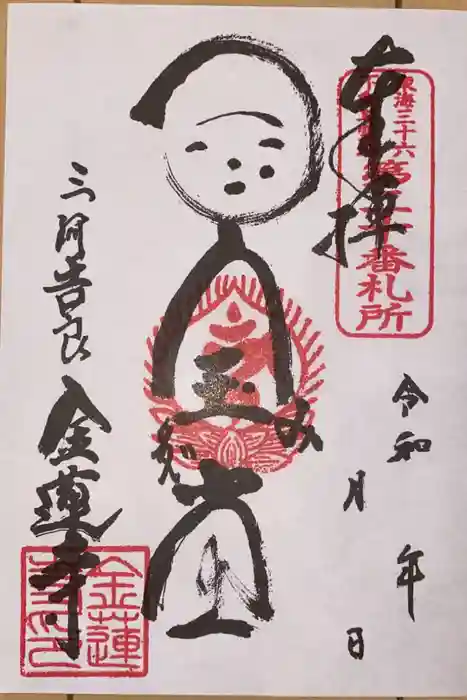 東海三十六
第二十番札所
奉拝
令和 年
月 日
宝
みだ
堂
三河吉良
金蓮寺
金蓮